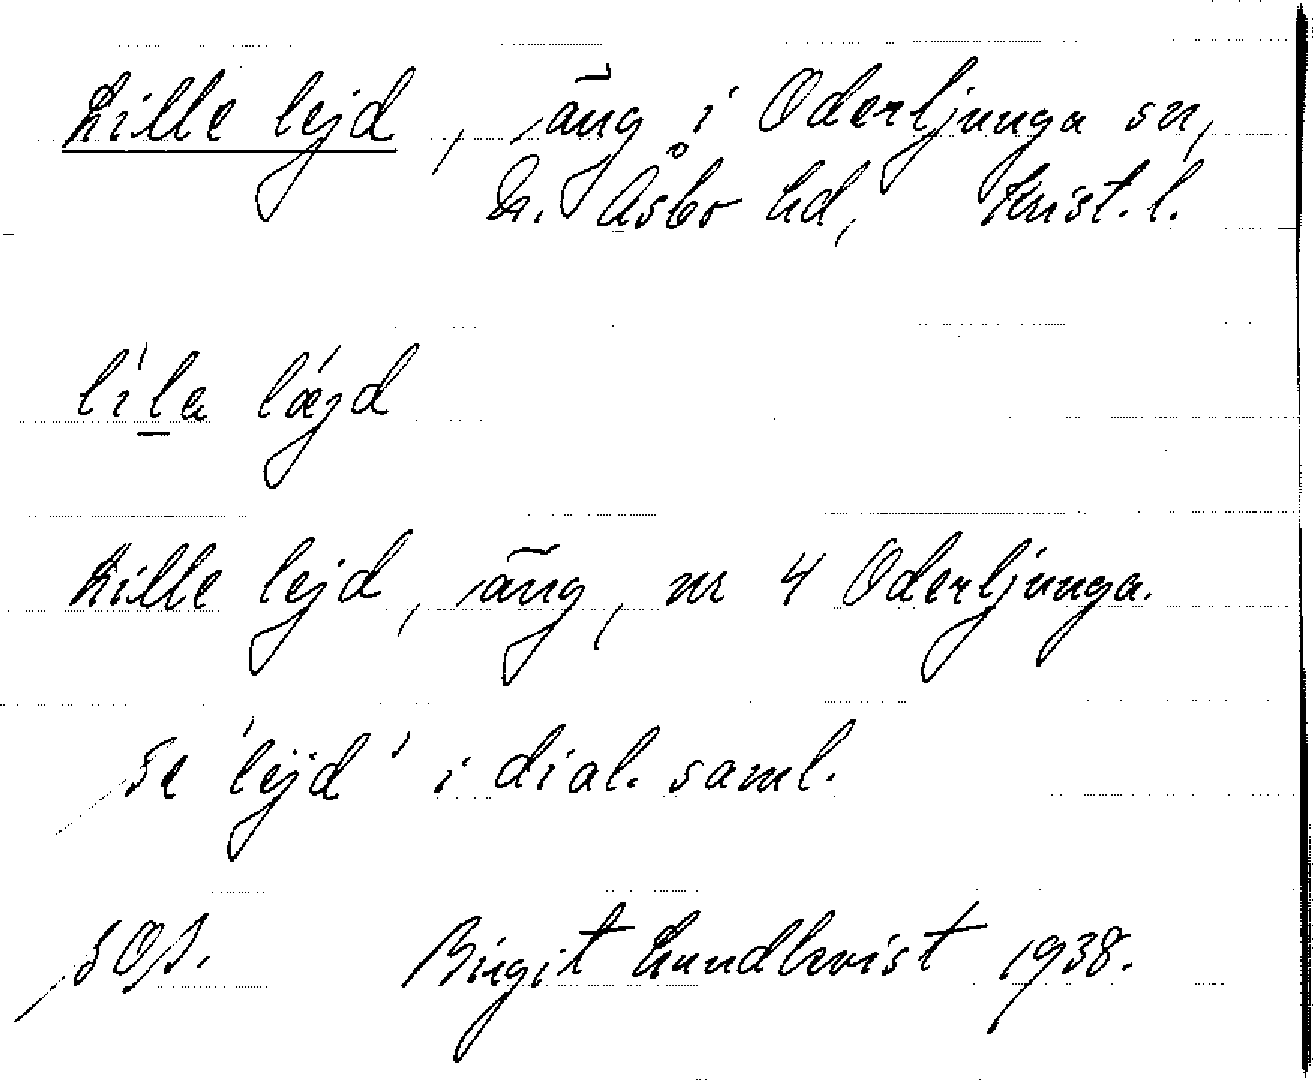 Lille lejd, äng i Oderljunga sn,
N. Åsbo hd, Krist. l.
lìla lǽjd
Lille lejd, äng, nr 4 Oderljunga.
Se 'lejd' i dial. saml.
SOI. Birgit Lundkvist 1938.